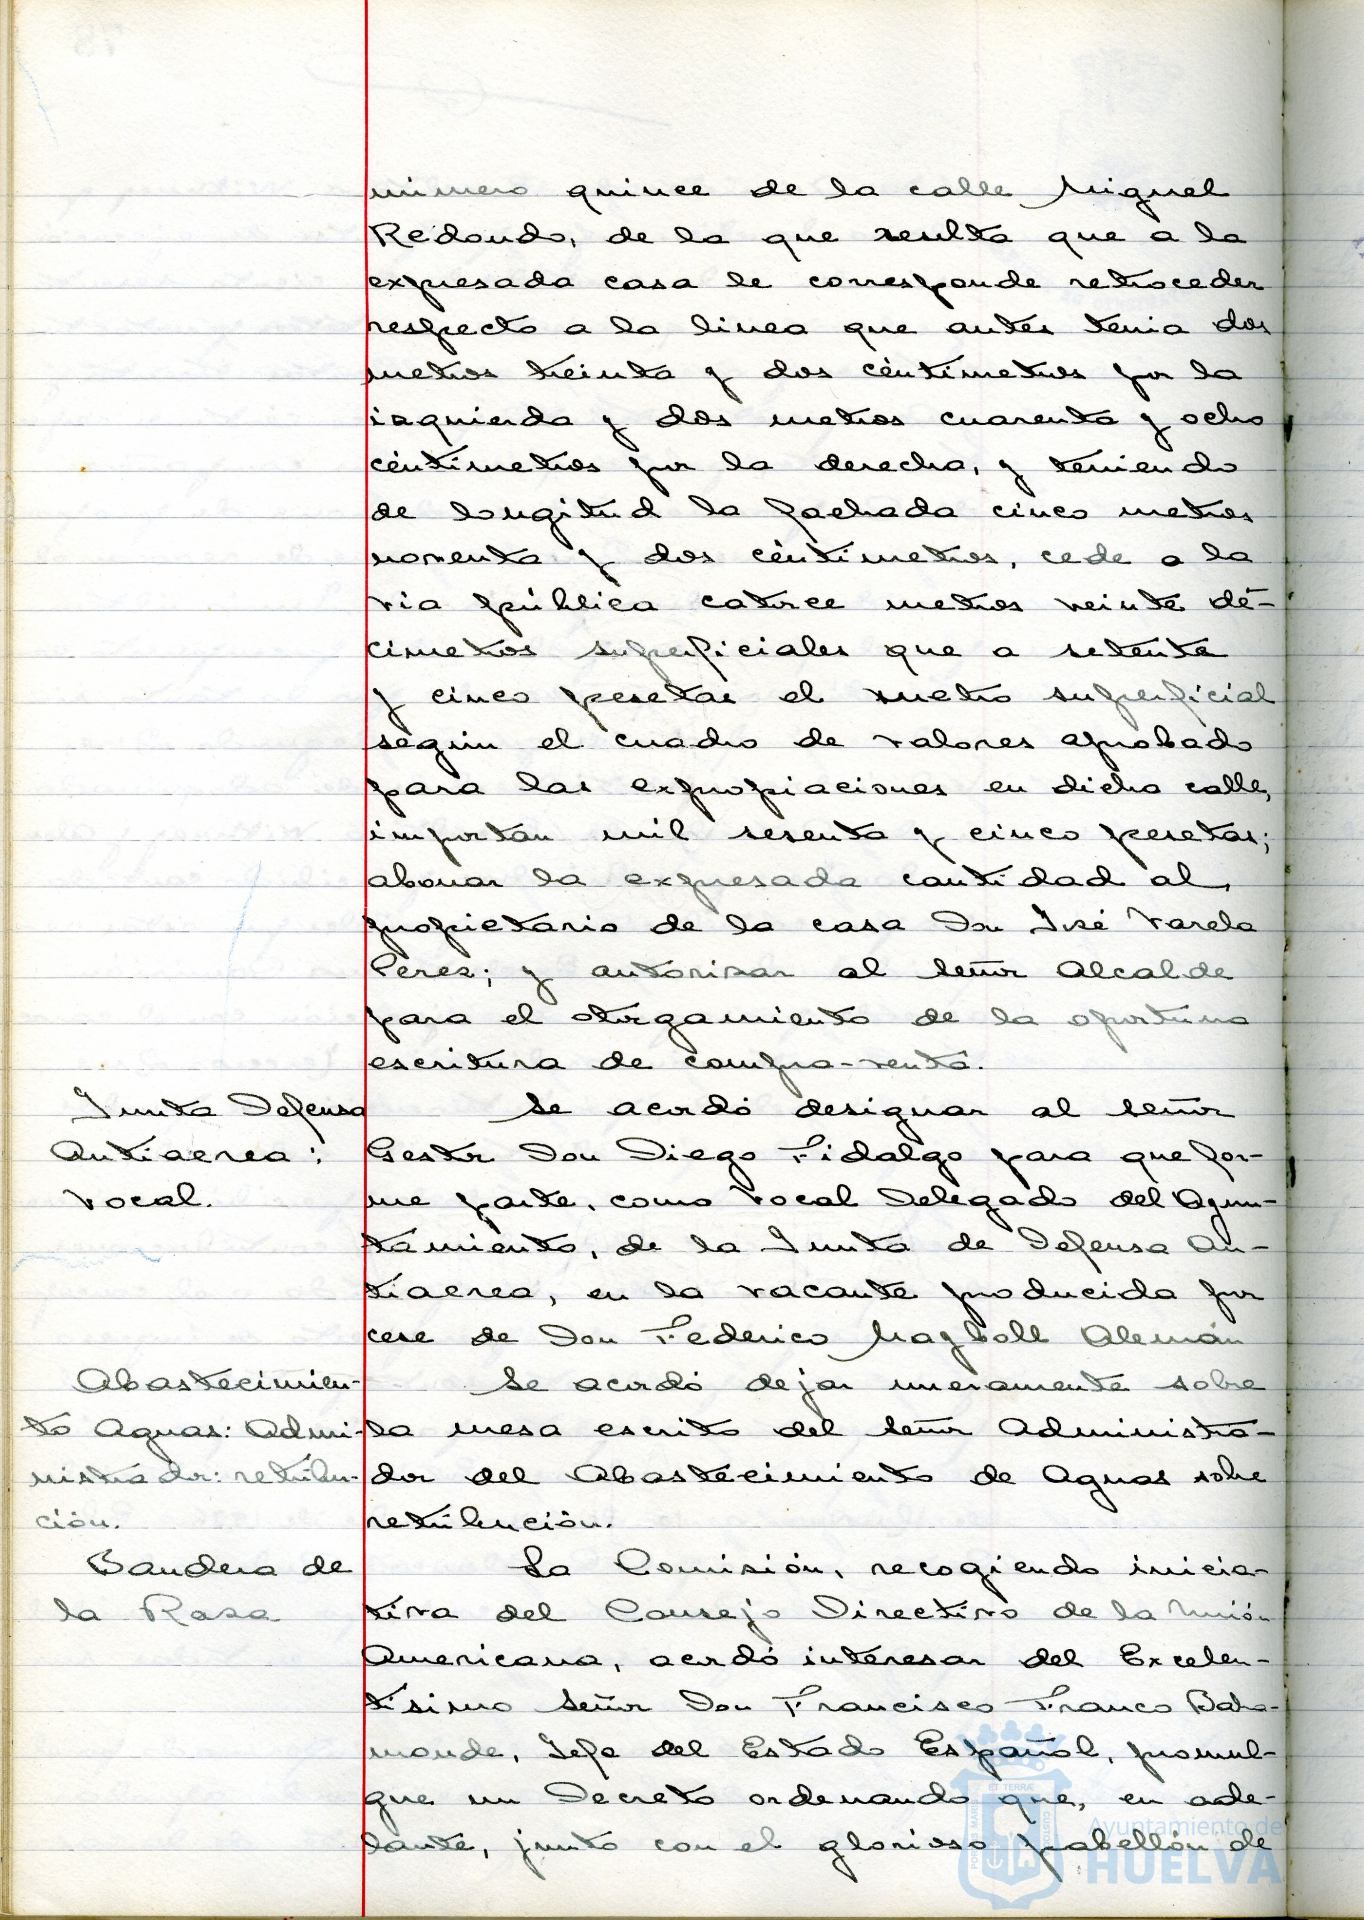 número quince de la calle Miguel
Redondo, de la que resulta que a la
expresada casa le corresponde retroceder
respecto a la línea que antes tenia dos
metros treinta y dos céntimetros por la
izquierda y dos metros cuarenta y ocho
céntimetros por la derecha, y teniendo
de longitud la fachada cinco metros
noventa y dos céntimetros, cede a la
via pública catorce metros veinte dé-
cimetros superficiales que a setenta
y cinco pesetas el metro superficial
según el cuadro de valores aprobado
para las expropiaciones en dicha calle,
importan mil sesenta y cinco pesetas;
abonar la expresada cantidad al
propietario de la casa Don José Varela
Perez; y autorizar al Señor Alcalde
para el otorgamiento de la oportuna
escritura de compra-venta.
Junta Defensa
Antiaerea:
Vocal.
Se acordó designar al Señor
Gestor Don Diego Fidalgo para que for-
me parte, como Vocal Delegado del Ayun-
tamiento, de la Junta de Defensa An-
tiaerea, en la vacante producida por
cese de Don Federico Mayboll Alemán
Abastecimien-
to Aguas: Admi-
nistrador: retribu-
ción.
Se acordó dejar nueramente sobre
la mesa escrito del Señor Administra-
dor del Abastecimiento de Aguas sobre
retribución.
Bandera de
la Raza
La Comisión, recogiendo inicia-
tiva del Consejo Directivo de la Unión
Americana, acordó interesar del Excelen-
tisimo Señor Don Francisco Franco Baha-
monde, Jefe del Estado Español, promul-
gue un Decreto ordenando que, en ade-
lante, junto con el glorioso pabellón de
Ayuntamiento de
HUELVA